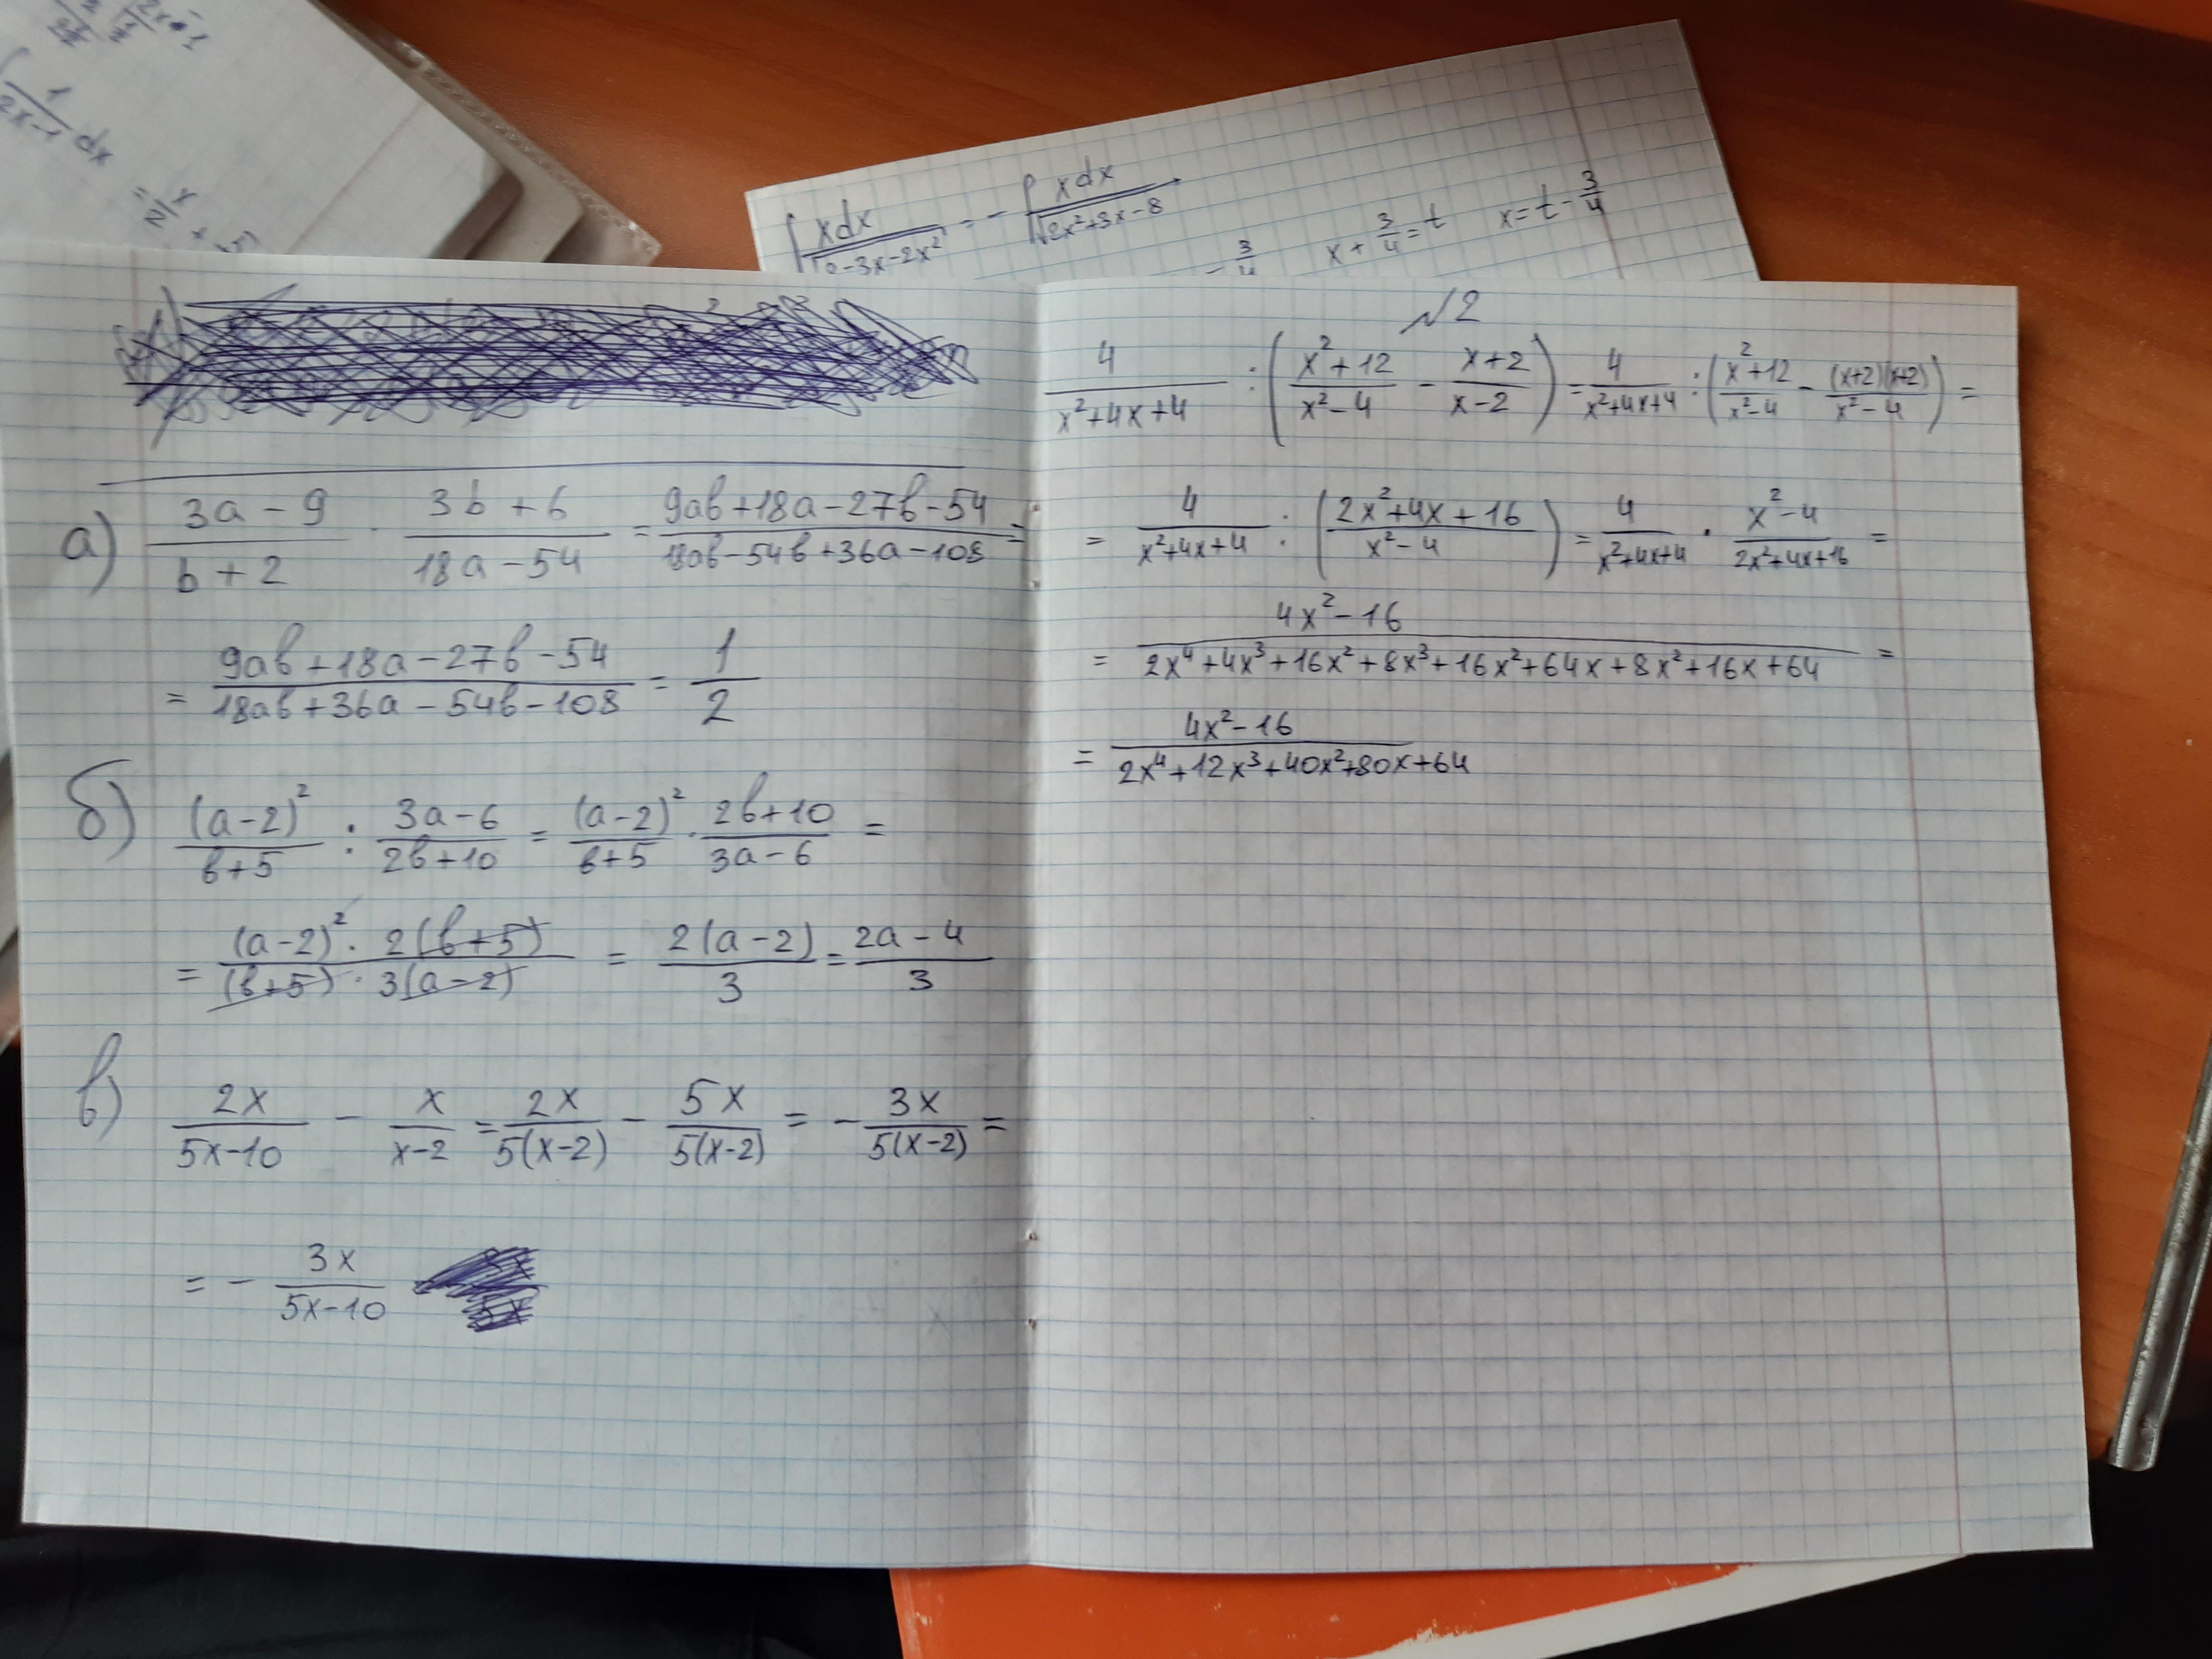 1/(2x-1) dx
= x/2 +
∫ xdx/√(-3x-2x²) = - ∫ xdx/√(2x²+3x-8)
- 3/4 x + 3/4 = t x = t - 3/4
а) (3a-9)/(b+2) · (3b+6)/(18a-54) = (9ab+18a-27b-54)/(18ab-54b+36a-108) =
= (9ab+18a-27b-54)/(18ab+36a-54b-108) = 1/2
б) (a-2)²/(b+5) : (3a-6)/(2b+10) = (a-2)²/(b+5) · (2b+10)/(3a-6) =
= ((a-2)² · 2(b+5))/((b+5) · 3(a-2)) = 2(a-2)/3 = (2a-4)/3
в) 2x/(5x-10) - x/(x-2) = 2x/(5(x-2)) - 5x/(5(x-2)) = - 3x/(5(x-2)) =
= - 3x/(5x-10)
№2
4/(x²+4x+4) : ((x²+12)/(x²-4) - (x+2)/(x-2)) = 4/(x²+4x+4) : ((x²+12)/(x²-4) - (x+2)(x+2)/(x²-4)) =
= 4/(x²+4x+4) : ((2x²+4x+16)/(x²-4)) = 4/(x²+4x+4) · (x²-4)/(2x²+4x+16) =
= (4x²-16)/(2x⁴+4x³+16x²+8x³+16x²+64x+8x²+16x+64) =
= (4x²-16)/(2x⁴+12x³+40x²+80x+64)